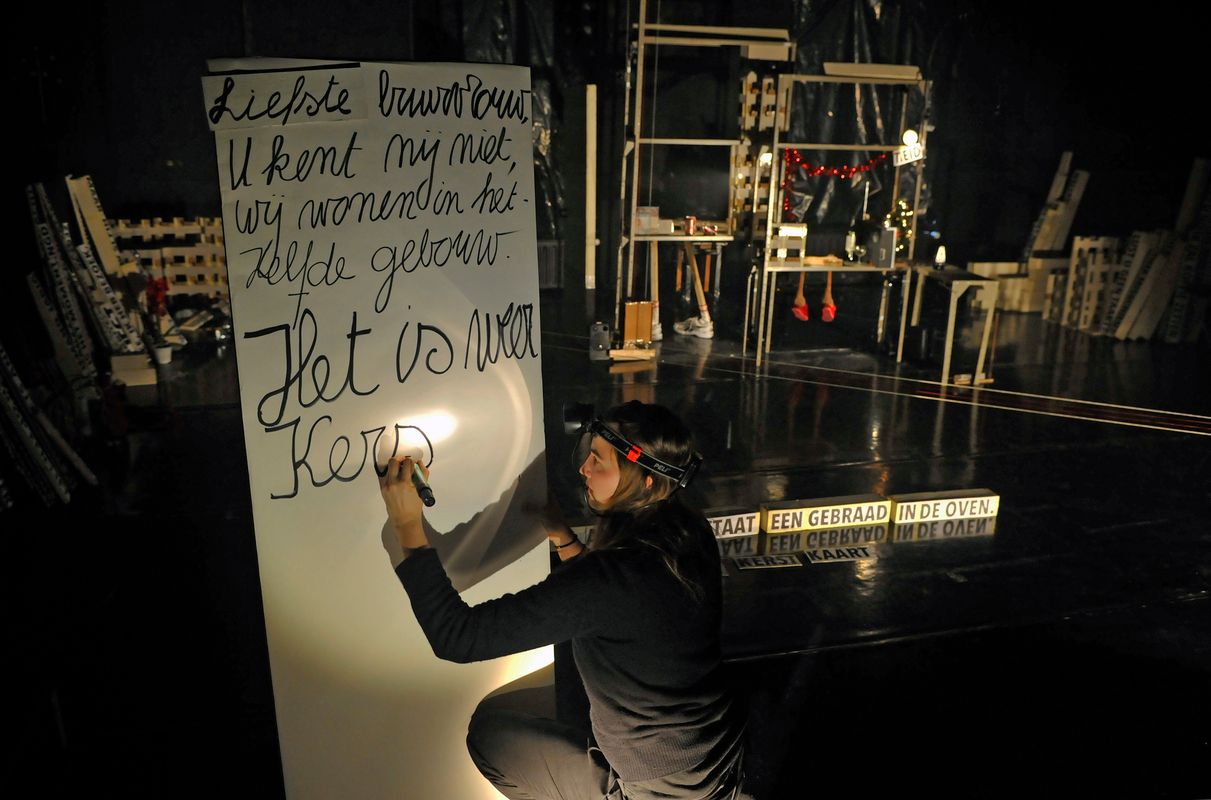 Liefste buurvrouw,
U kent mij niet,
wij wonen in het-
zelfde gebouw.
Het is weer
Kers
PELI
TAAT EEN GEBRAAD IN DE OVEN.
KERST KAART